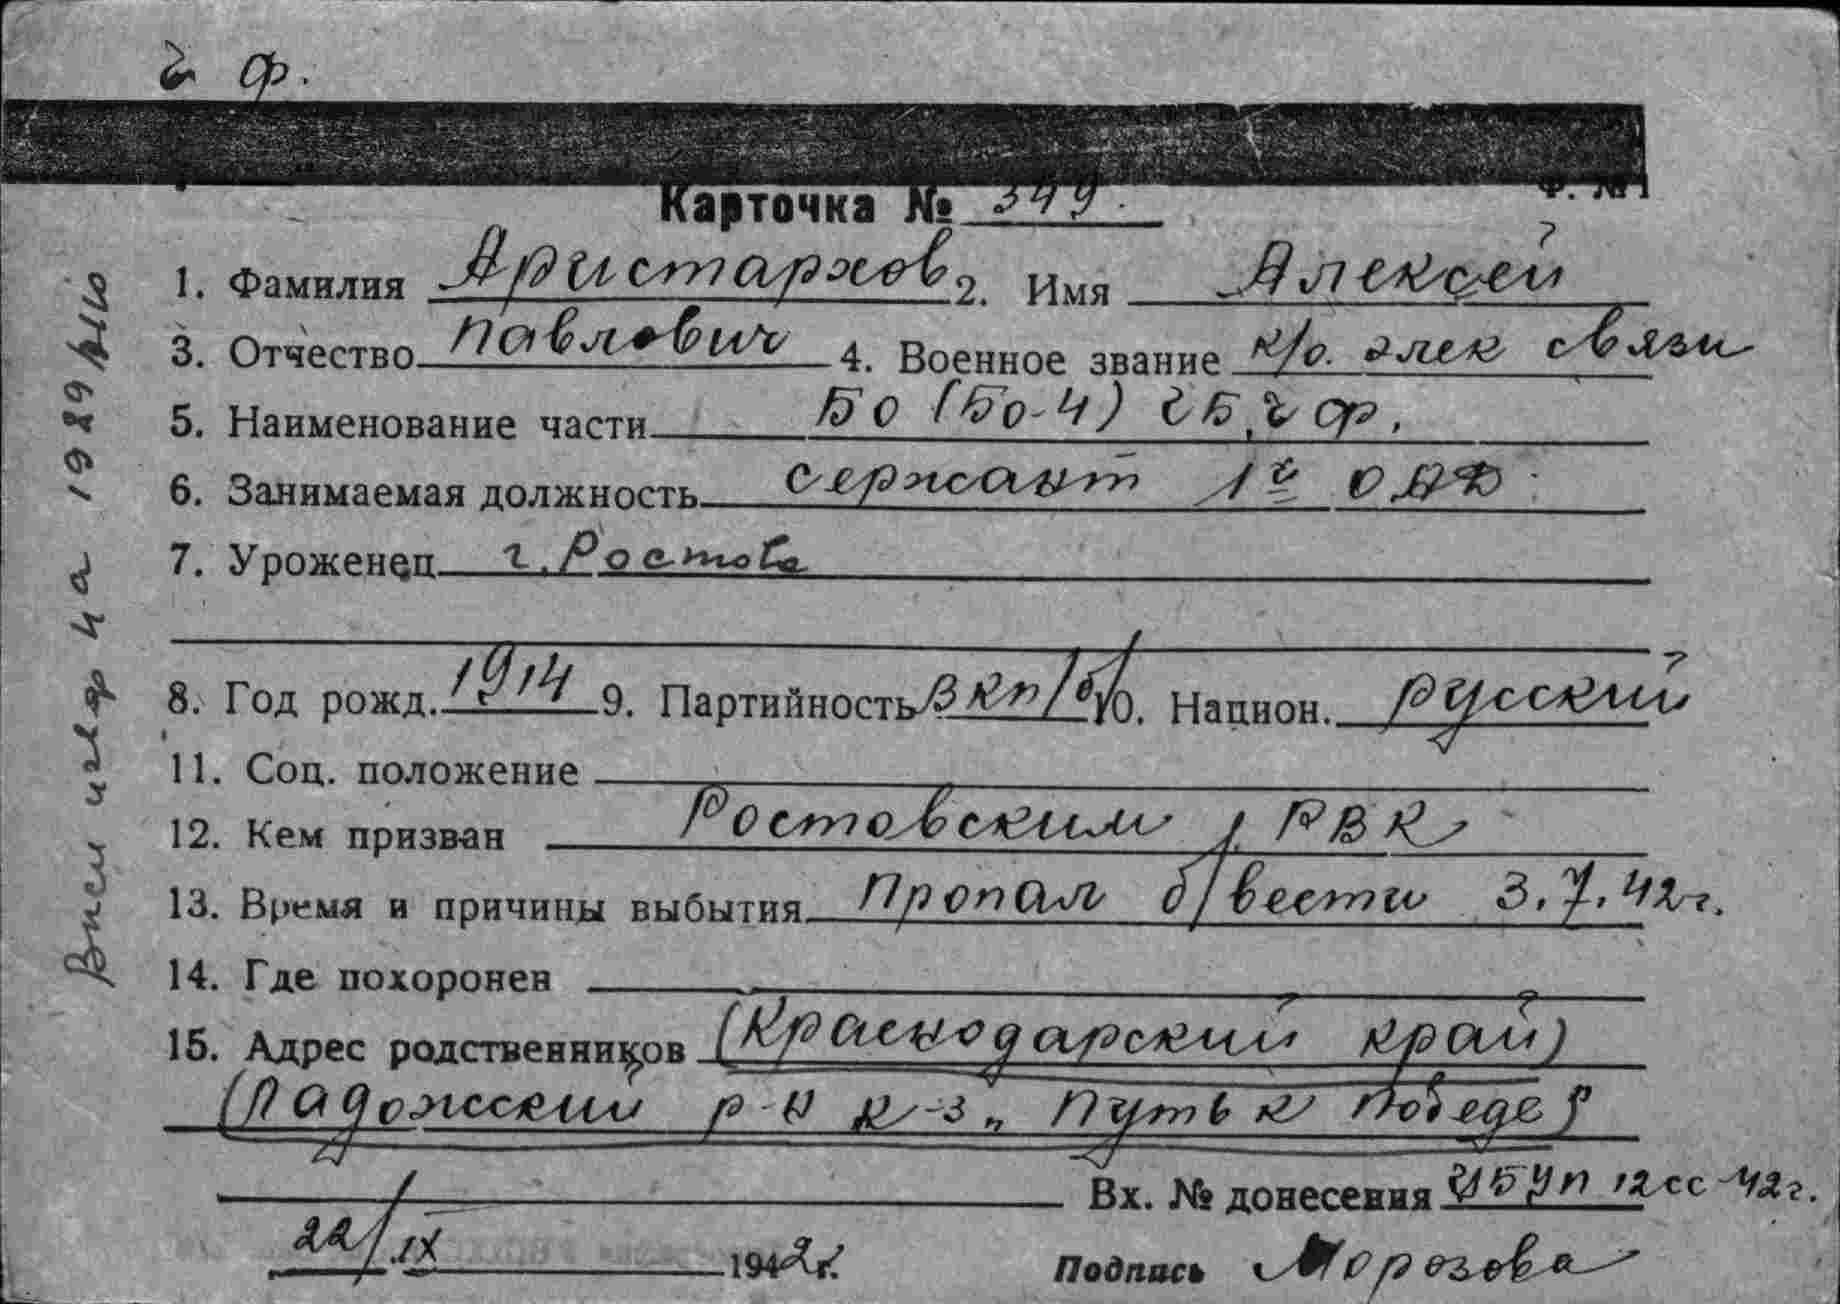 ч ф.
Ф. №1
Карточка № 349.
1. Фамилия Аристархов 2. Имя Алексей
3. Отчество Павлович 4. Военное звание к/о. элек связи
5. Наименование части БО (Бо-4) ЧБ, ч ф.
6. Занимаемая должность сержант 1й ОАД
7. Уроженец г. Ростова
8. Год рожд. 1914 9. Партийность ВКП/б/ 10. Национ. русский
11. Соц. положение
12. Кем призван Ростовским РВК
13. Время и причины выбытия Пропал б/вести 3.7.42г.
14. Где похоронен
15. Адрес родственников (Краснодарский край)
(Ладожский р-н к-з „Путь к победе)
Вх. № донесения УП 12сс 42г.
22/IX 1942г.
Подпись Морозова
на 1989